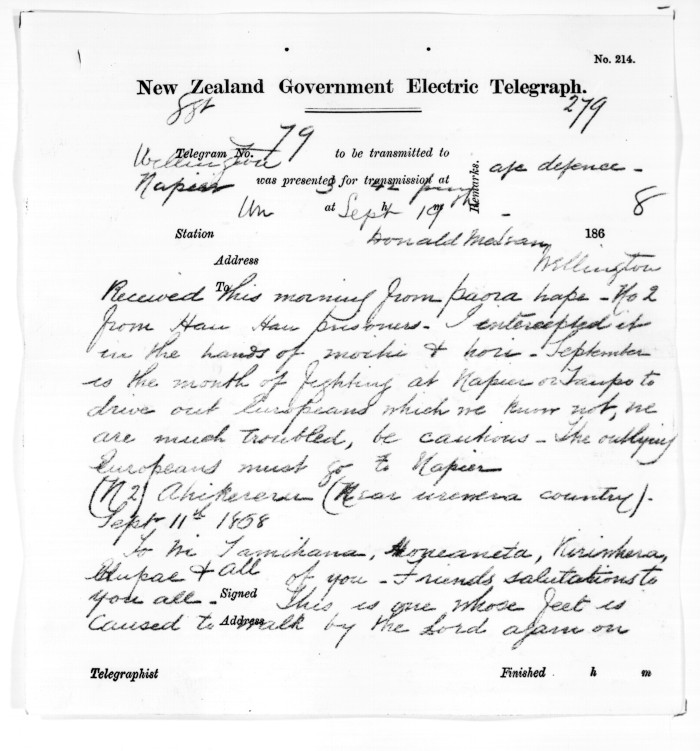 No. 214.
New Zealand Government Electric Telegraph.
279
Telegram No. 79 to be transmitted to
Wellington
Napier was presented for transmission at
Remarks.
afc defence -
at Sept h 19 m
8
Station
Donald McLean 186
Address
Wellington
To
Received this morning from paora hape - No 2
from Hau Hau prisoners - I intercepted it
in the hands of mochi & hori - September
is the month of fighting at Napier or Taupo to
drive out Europeans which we know not, we
are much troubled, be cautious - The outlying
Europeans must go to Napier
(N2) Ahikereru (Near urewera country).
Sept 11th 1868
To Wi Tamihana,
& all of you - Friends salutations to
you all - Signed This is one whose feet is
caused to Address walk by the Lord again on
Telegraphist Finished h m